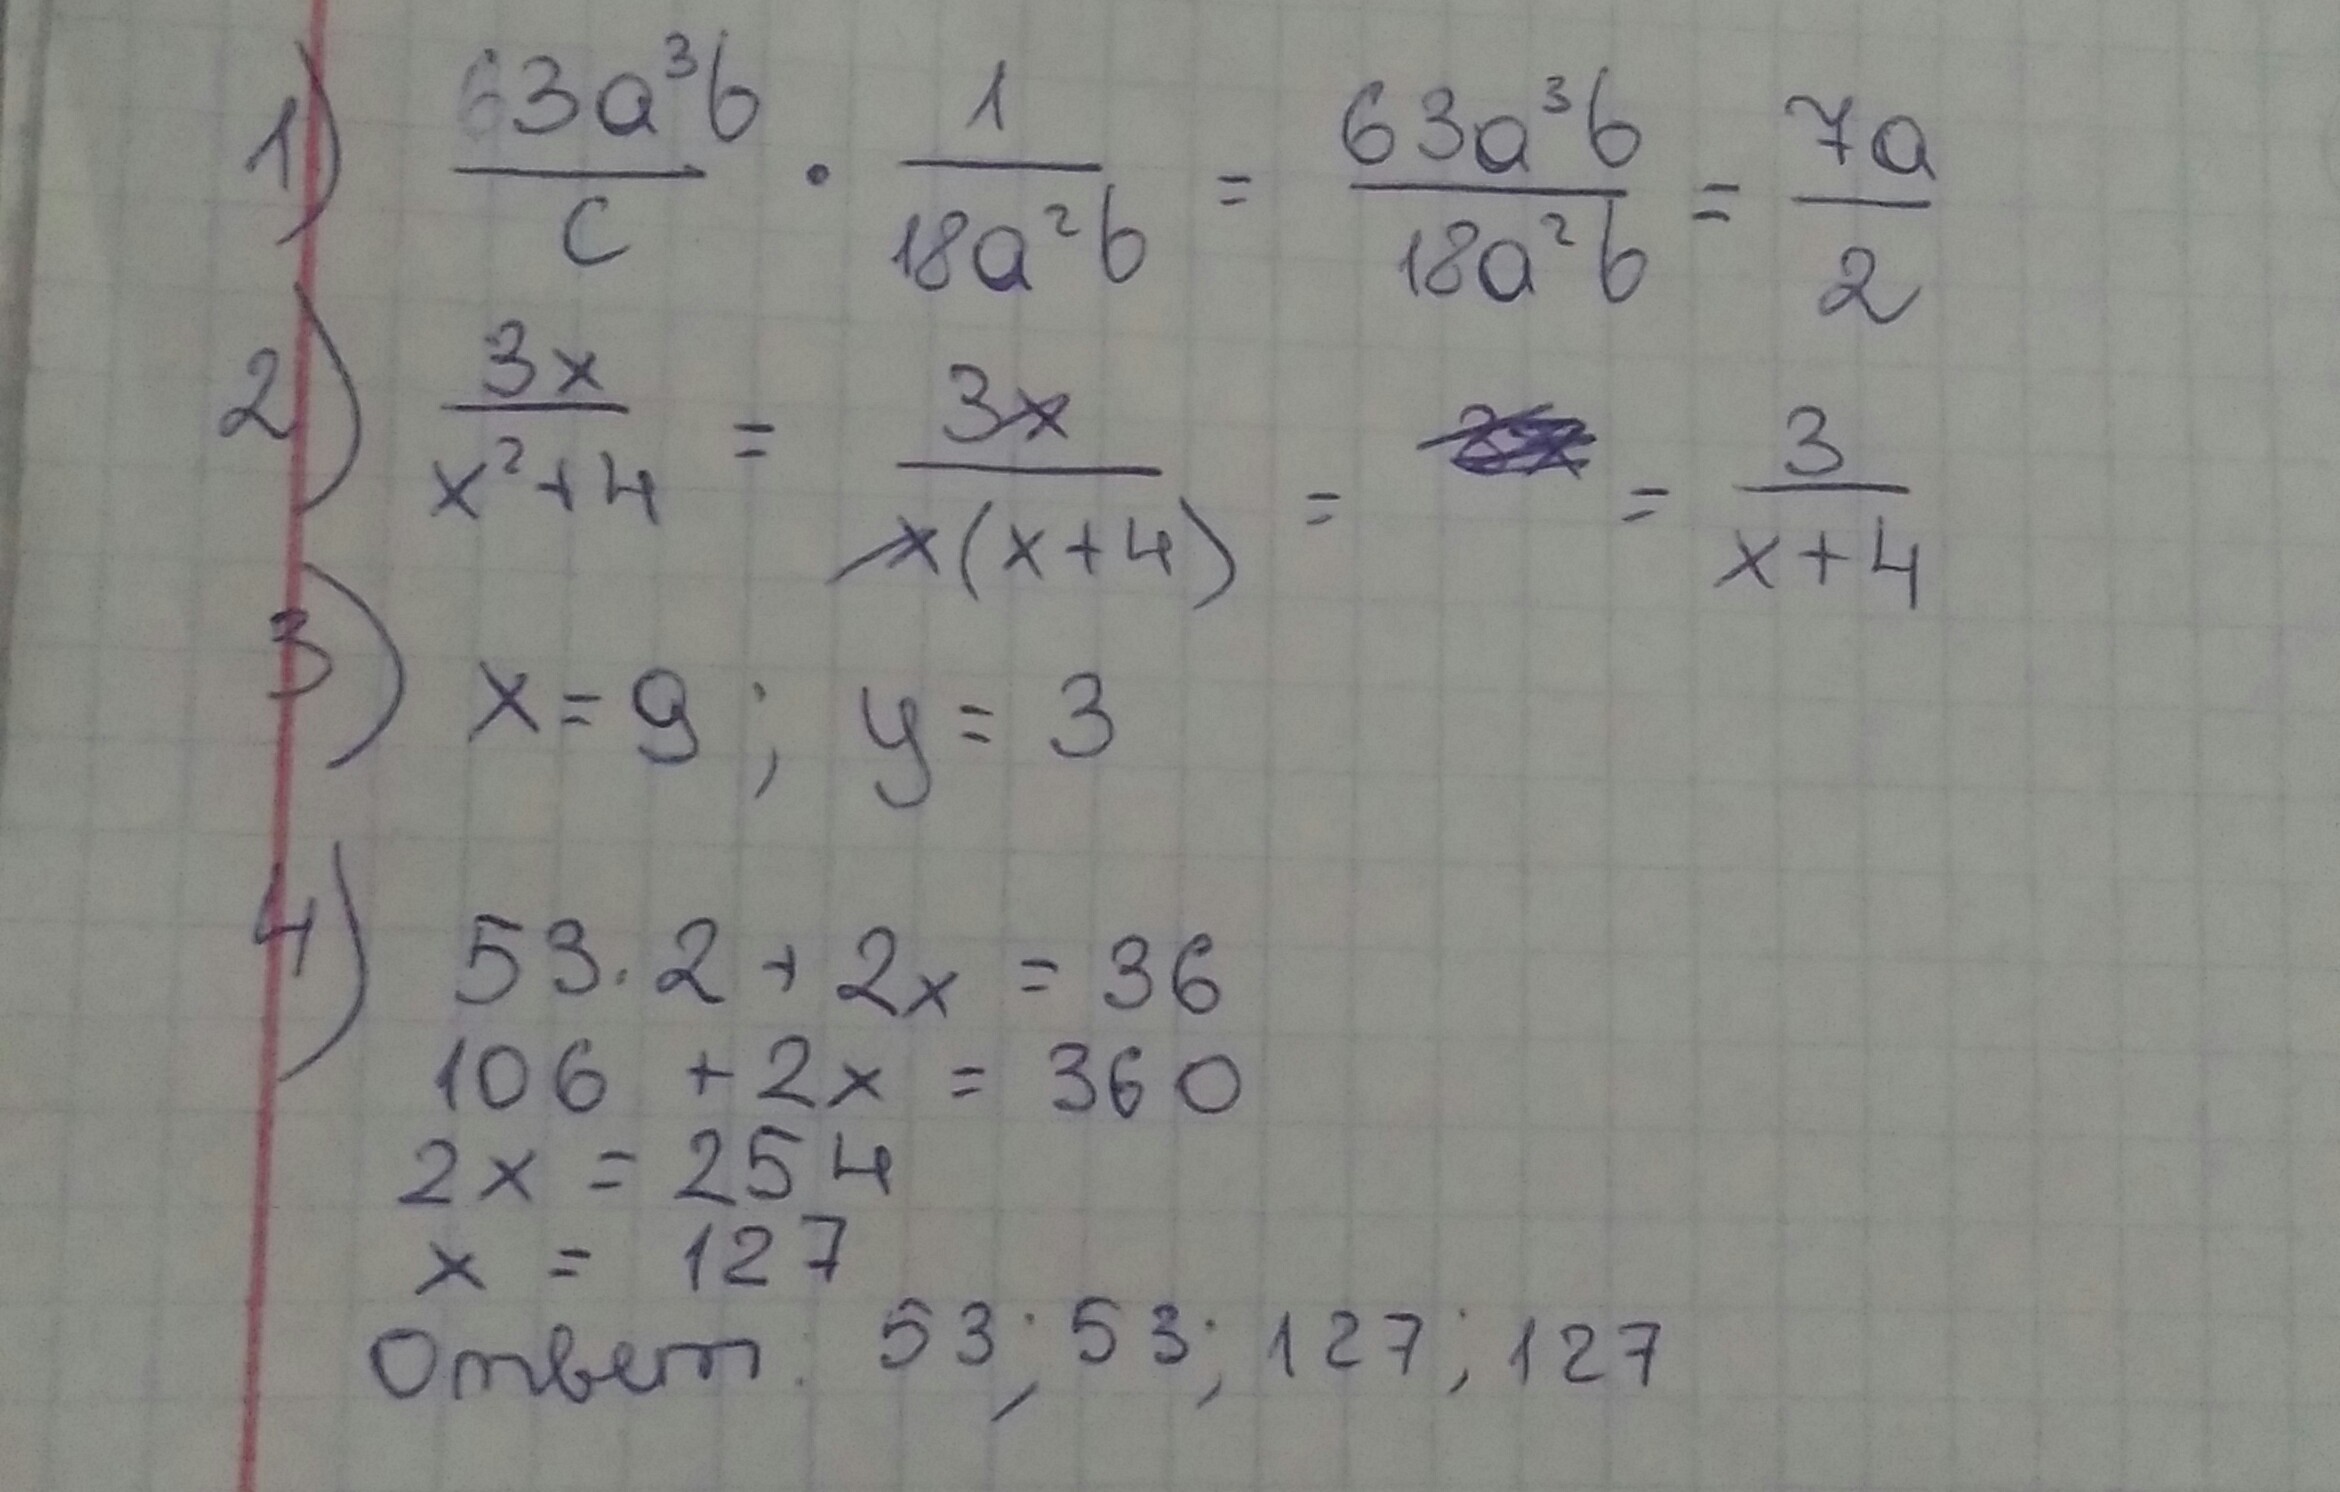 1) 63a³b/c · 1/18a²b = 63a³b/18a²b = 7a/2
2) 3x/x²+4 = 3x/x(x+4) = = 3/x+4
3) x = 9 ; y = 3
4) 53 · 2 + 2x = 36
106 + 2x = 360
2x = 254
x = 127
Ответ: 53; 53; 127; 127